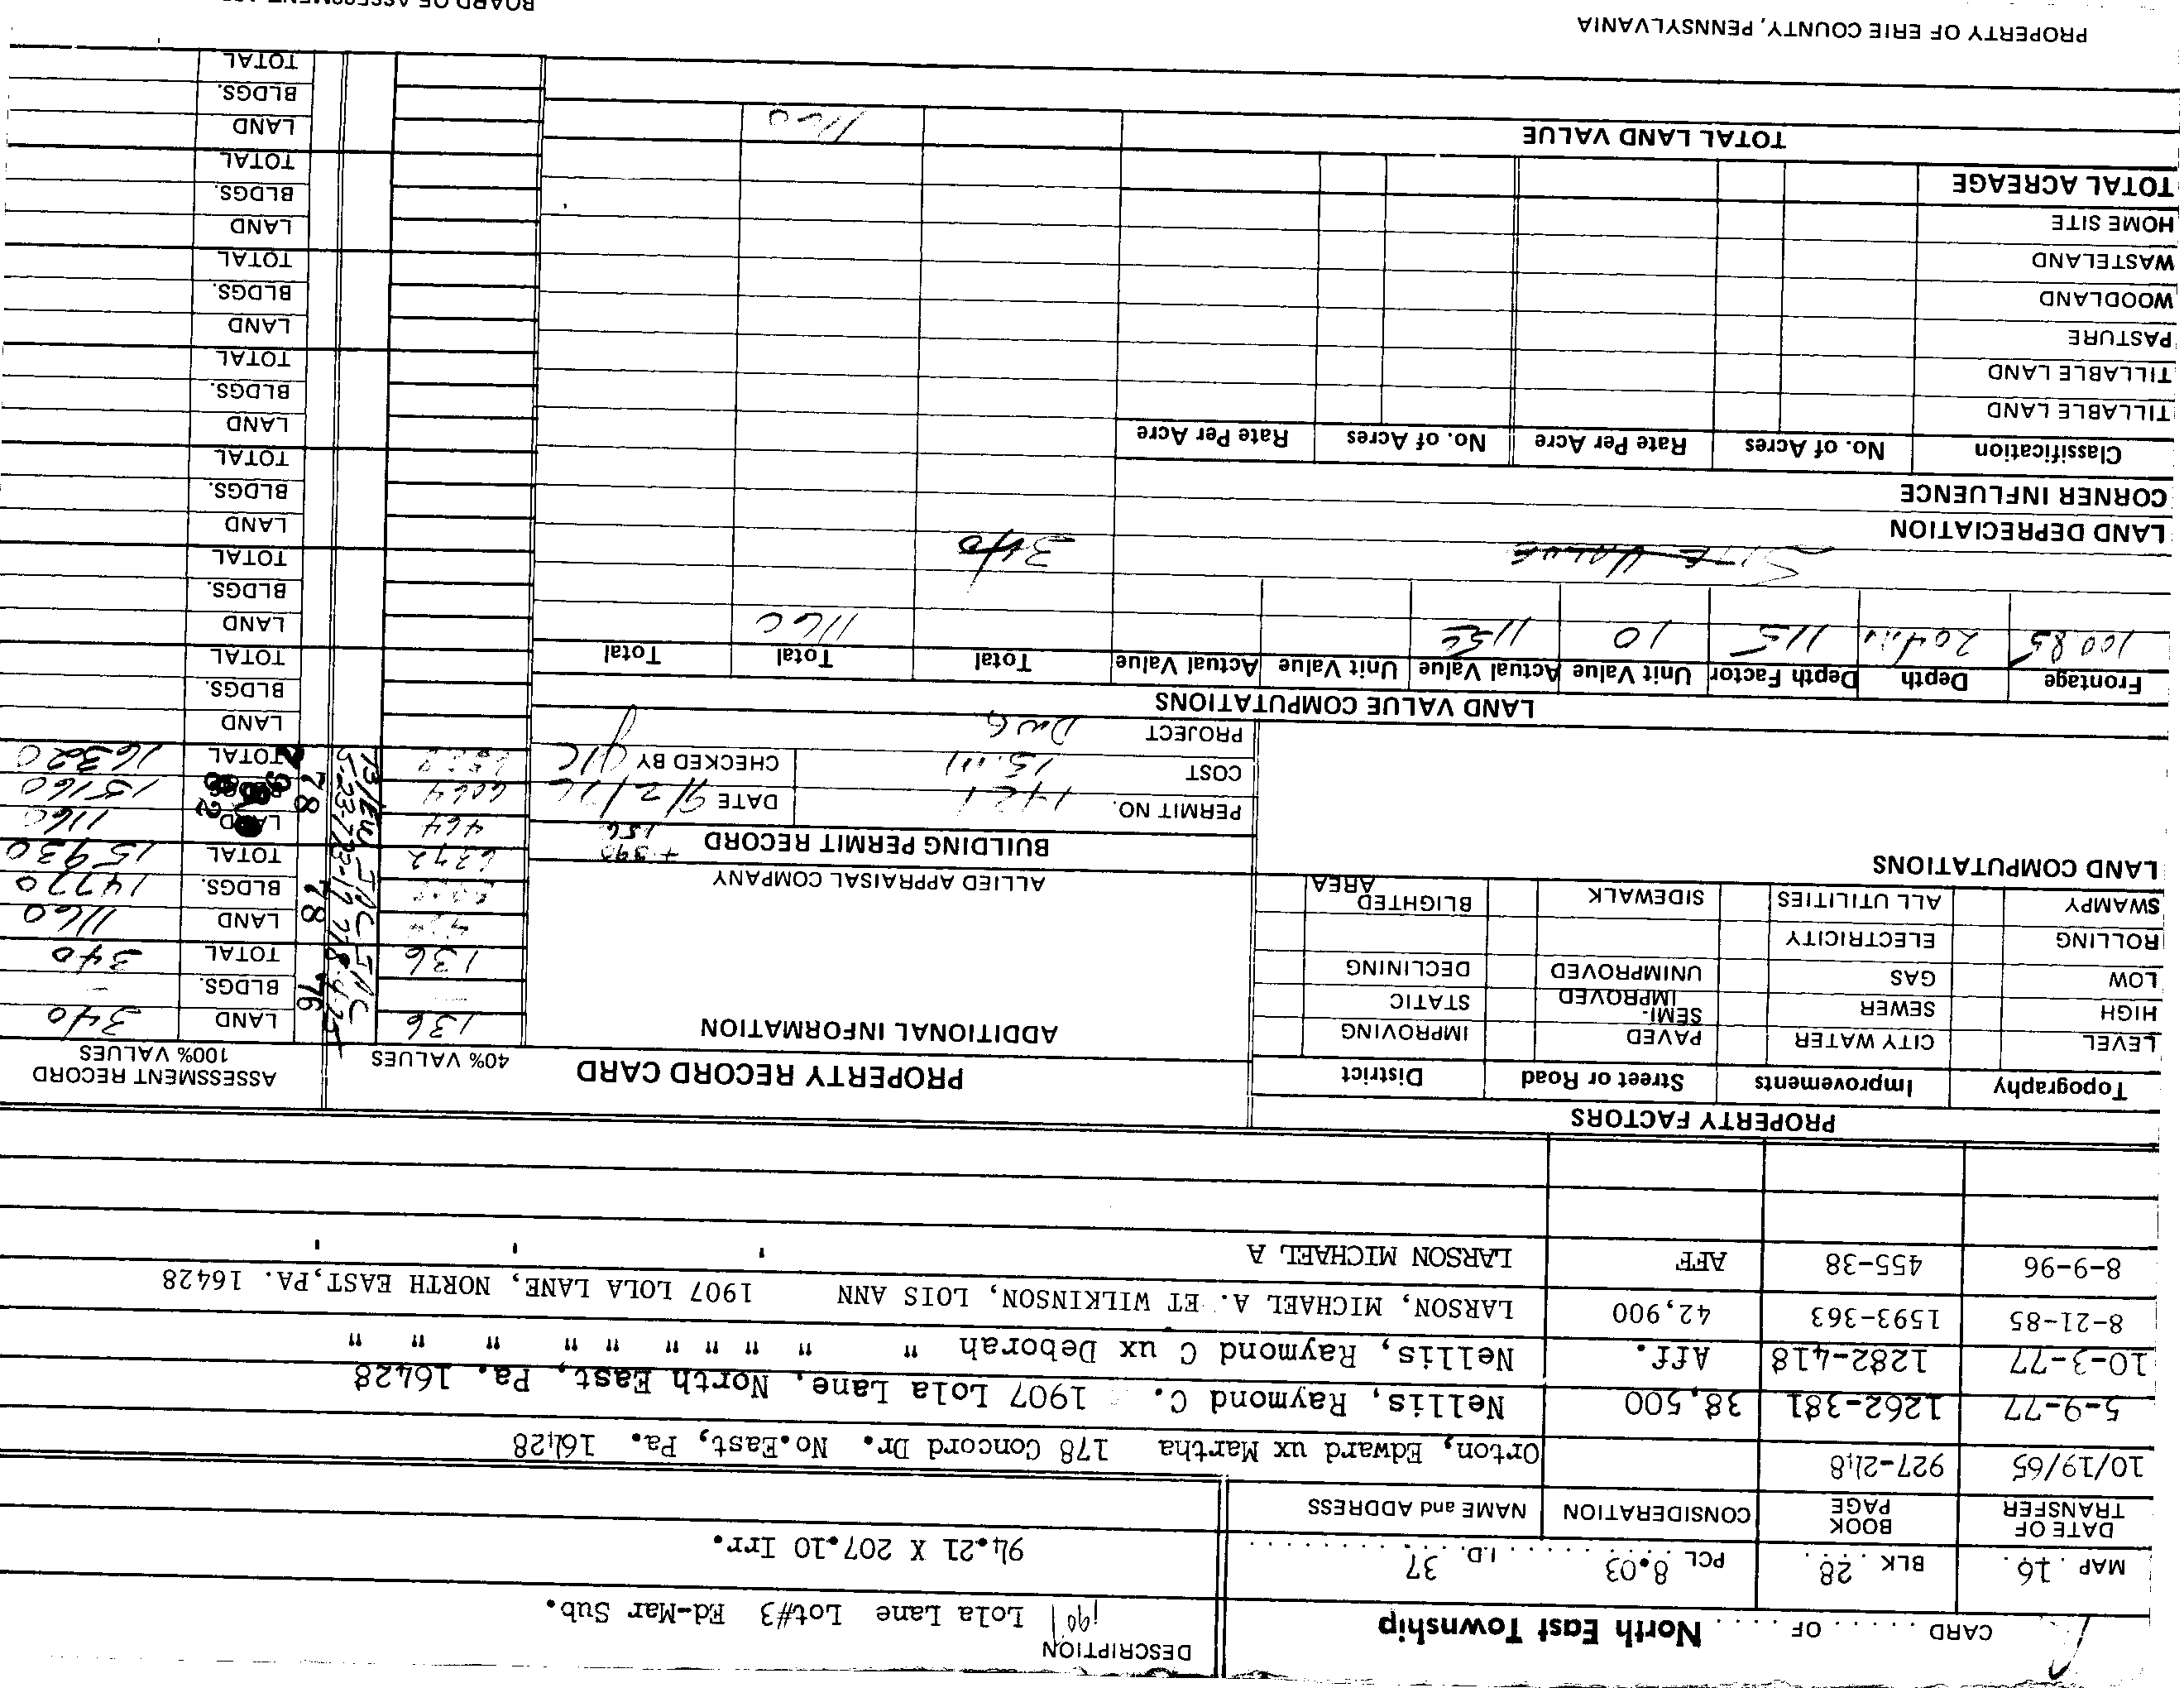 CARD ...... OF ...... North East Township
DESCRIPTION
Lola Lane Lot#3 Ed-Mar Sub.
MAP . 16 . BLK . 28 . PCL 8.03 I.D. 37
94.21 X 207.10 Irr.
DATE OF TRANSFER BOOK PAGE CONSIDERATION NAME and ADDRESS
10/19/65 927-248 Orton, Edward ux Martha 178 Concord Dr. No.East, Pa. 16428
5-9-77 1262-381 38,500 Nellis, Raymond C. 1907 Lola Lane, North East, Pa. 16428
10-3-77 1282-418 Aff. Nellis, Raymond C ux Deborah " " " " " " " " " "
8-21-85 1593-363 42,900 LARSON, MICHAEL A. ET WILKINSON, LOIS ANN 1907 LOLA LANE, NORTH EAST,PA. 16428
8-9-96 455-38 AFF LARSON MICHAEL A ' ' '
PROPERTY FACTORS
Topography Improvements Street or Road District
LEVEL CITY WATER PAVED IMPROVING
HIGH SEWER SEMI-IMPROVED STATIC
LOW GAS UNIMPROVED DECLINING
ROLLING ELECTRICITY
SWAMPY ALL UTILITIES SIDEWALK BLIGHTED AREA
LAND COMPUTATIONS
PROPERTY RECORD CARD
ADDITIONAL INFORMATION
ALLIED APPRAISAL COMPANY
BUILDING PERMIT RECORD
PERMIT NO. 1421 DATE 9/2/76
COST 15.m CHECKED BY
PROJECT DWG
40% VALUES
136
136
6372
464
6064
ASSESSMENT RECORD
100% VALUES
76
LAND 340
BLDGS. -
TOTAL 340
78
LAND 1160
BLDGS. 14770
TOTAL 15930
78
LAND 1160
15160
TOTAL 16320
LAND
BLDGS.
TOTAL
LAND
BLDGS.
TOTAL
LAND
BLDGS.
TOTAL
LAND
BLDGS.
TOTAL
LAND
BLDGS.
TOTAL
LAND
BLDGS.
TOTAL
LAND
BLDGS.
TOTAL
LAND VALUE COMPUTATIONS
Frontage Depth Depth Factor Unit Value Actual Value Unit Value Actual Value Total Total Total
100.85 204.11 115 10 1156 1160
SITE VALUE 340
LAND DEPRECIATION
CORNER INFLUENCE
Classification No. of Acres Rate Per Acre No. of Acres Rate Per Acre
TILLABLE LAND
TILLABLE LAND
PASTURE
WOODLAND
WASTELAND
HOME SITE
TOTAL ACREAGE
TOTAL LAND VALUE 1160
PROPERTY OF ERIE COUNTY, PENNSYLVANIA
BOARD OF ASSESSMENT